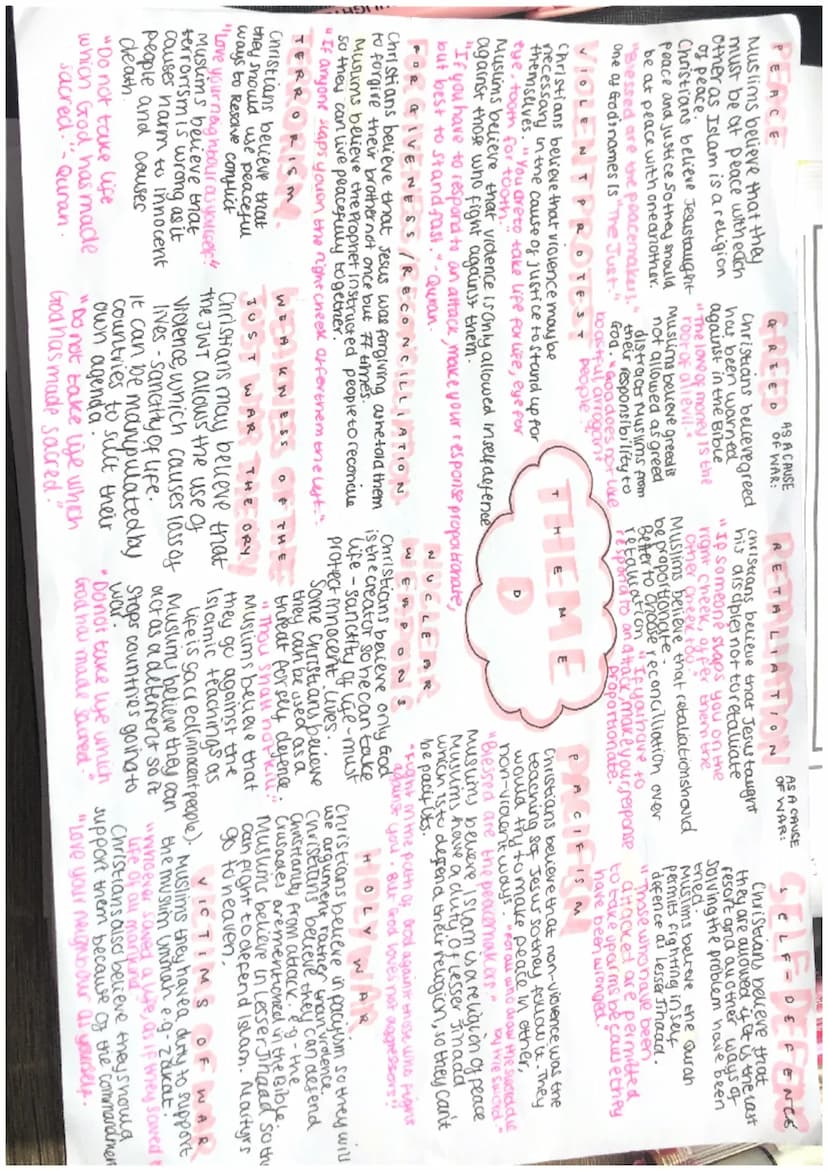 PEACE
Muslims believe that they
must be at peace with each
other as Islam is a religion
of peace.
Christians believe Jesus taught
peace and justice so they should
be at peace with one another.
"Blessed are the peacemakers."
one of God names is "The Just".
GREED AS A CAUSE
OF WAR:
Christians believe greed
has been warned
against in the Bible
"The love of money is the
root of all evil."
Muslims believe greed is
not allowed as greed
distracts Muslims from
their responsibility to
God. "God does not like
boastful arrogant
people."
RETALIATION AS A CAUSE
OF WAR:
Christians believe that Jesus taught
his disciples not to retaliate
"If someone slaps you on the
right cheek, offer them the
other cheek too."
Muslims believe that retaliation should
be proportionate.
Better to choose reconciliation over
retaliation "If you have to
respond to an attack, make your response
proportionate."
SELF-DEFENCE
Christians believe that
they are allowed if it is the last
resort and all other ways of
solving the problem have been
tried.
Muslims believe the Qurah
permit fighting in self
defence as lesser Jihad.
"Those who have been
attacked are permitted
to take year ms because they
have been wronged.
VIOLENT PROTEST
Christians believe that violence may be
necessary in the cause of justice to stand up for
themselves. "You are to take life for life, eye for
eye, tooth for tooth."
Muslims believe that violence is only allowed in self defence
against those who fight against them.
"If you have to respond to an attack, make your response proportionate,
but best to stand fast." - Quran.
THEME
D
PACIFISM
Christians believe that non-violence was the
teaching of Jesus so they follow it. They
would try to make peace in other,
non-violent ways. "For all who draw the sword die
by the sword."
"Blessed are the peacemakers."
Muslims believe Islam is a religion of peace
Muslims have a duty of Lesser Jihad
which is to defend their religion, so they can't
be pacifists.
FORGIVENESS/RECONCILLIATION
Christians believe that Jesus was forgiving as he told them
to forgive their brother not once but 77 times.
Muslims believe the Prophet instructed people to reconcile
so they can live peacefully together.
"If anyone slaps you on the right cheek offer them the left."
NUCLEAR
WEAPONS
Christians believe only God
is the creator so he can take
life - sanctity of life - must
protect innocent lives.
Some Christians believe
they can be used as a
threat for self defence
"Thou shall not kill."
Muslims believe that
they go against the
Islamic teachings as
life is sacred (innocent people).
Muslims believe they can
act as a deterrent so it
stops countries going to
war.
"Do not take life which
God has made sacred."
HOLY WAR
"Fight in the path of God against those who fight
against you. But God loves not aggressors."
Christians believe in pacifism so they will
use argument rather than violence.
Christians believe they can defend
Christianity from attack. e.g - the
Crusades are mentioned in the Bible.
Muslims believe in Lesser Jihad so th
can fight to defend Islam. Martyrs
go to heaven.
TERRORISM
Christians believe that
they should use peaceful
ways to resolve conflict
"Love your neighbour as yourself."
Muslims believe that
terrorism is wrong as it
causes harm to innocent
people and causes
death.
"Do not take life
which God has made
sacred." - Quran.
WEAKNESS OF THE
JUST WAR THEORY
Christians may believe that
the JWT allows the use of
violence, which causes loss of
lives - sanctity of life.
It can be manipulated by
countries to suit their
own agenda.
"Do not take life which
God has made sacred."
VICTIMS OF WAR
Muslims they have a duty to support
the muslim Ummah e.g - Zakat.
"Whoever saved a life, as if they saved t
life of all mankind"
Christians also believe they should
support them because of the commandmen
"Love your neighbour as yourself.